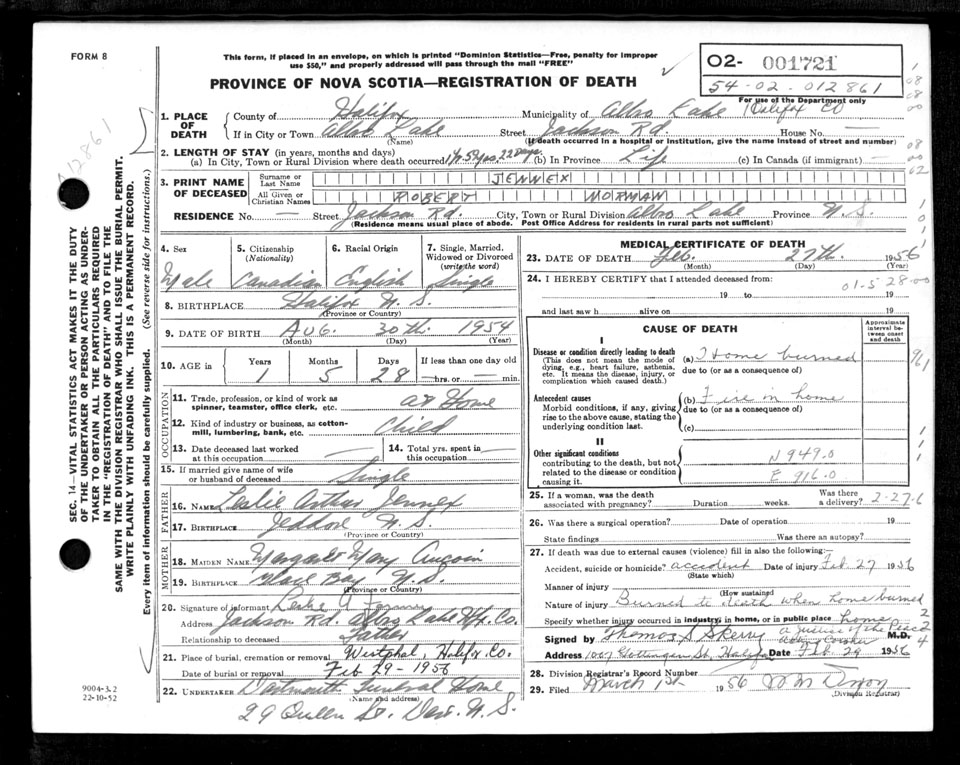 FORM 8
This form, if placed in an envelope, on which is printed "Dominion Statistics—Free, penalty for improper
use $50," and properly addressed will pass through the mail "FREE"
PROVINCE OF NOVA SCOTIA—REGISTRATION OF DEATH
O2- 001721
54-02-012861
For use of the Department only
1. PLACE OF DEATH
County of Halifax Municipality of Albro Lake Halifax Co
If in City or Town Albro Lake Street Jackson Rd. House No. —
(Name) (If death occurred in a hospital or institution, give the name instead of street and number)
2. LENGTH OF STAY (in years, months and days)
(a) In City, Town or Rural Division where death occurred (b) In Province Life (c) In Canada (if immigrant) —
3. PRINT NAME OF DECEASED
Surname or Last Name JENNEX
All Given or Christian Names ROBERT NORMAN
RESIDENCE No. — Street Jackson Rd. City, Town or Rural Division Albro Lake Province N.S.
(Residence means usual place of abode. Post Office Address for residents in rural parts not sufficient)
4. Sex 5. Citizenship (Nationality) 6. Racial Origin 7. Single, Married, Widowed or Divorced (write the word)
Male Canadian English Single
8. BIRTHPLACE Halifax N.S.
(Province or Country)
9. DATE OF BIRTH Aug. 30th 1954
(Month) (Day) (Year)
10. AGE in Years Months Days If less than one day old
1 5 28 — hrs. or — min.
OCCUPATION
11. Trade, profession, or kind of work as spinner, teamster, office clerk, etc. at Home
12. Kind of industry or business, as cotton-mill, lumbering, bank, etc. Child
13. Date deceased last worked at this occupation —
14. Total yrs. spent in this occupation —
15. If married give name of wife or husband of deceased Single
FATHER
16. NAME Leslie Arthur Jennex
17. BIRTHPLACE Jeddore N.S.
(Province or Country)
MOTHER
18. MAIDEN NAME Margaret Mary Aucoin
19. BIRTHPLACE Glace Bay N.S.
(Province or Country)
20. Signature of informant Leslie A Jennex
Address Jackson Rd. Albro Lake Hfx. Co.
Relationship to deceased Father
21. Place of burial, cremation or removal Westphal, Halifax Co.
Date of burial or removal Feb 29 - 1956
22. UNDERTAKER Dartmouth Funeral Home
(Name and address)
29 Queen St. Dart. N.S.
MEDICAL CERTIFICATE OF DEATH
23. DATE OF DEATH Feb. 27th. 1956
(Month) (Day) (Year)
24. I HEREBY CERTIFY that I attended deceased from:
19 to 19
01-5 28-00
and last saw h alive on 19
CAUSE OF DEATH
Approximate interval between onset and death
I
Disease or condition directly leading to death
(This does not mean the mode of dying, e.g., heart failure, asthenia, etc. It means the disease, injury, or complication which caused death.)
(a) Home burned
due to (or as a consequence of)
Antecedent causes
Morbid conditions, if any, giving rise to the above cause, stating the underlying condition last.
(b) Fire in home
due to (or as a consequence of)
(c)
II
Other significant conditions
contributing to the death, but not related to the disease or condition causing it.
N 949.0
E 916.0
25. If a woman, was the death associated with pregnancy? Duration weeks. Was there a delivery?
2-27-6
26. Was there a surgical operation? Date of operation 19
State findings Was there an autopsy?
27. If death was due to external causes (violence) fill in also the following:—
Accident, suicide or homicide? accident Date of injury Feb 27 1956
(State which)
Manner of injury
(How sustained)
Nature of injury Burned to death when home burned
Specify whether injury occurred in industry, in home, or in public place home
Signed by Thomas S Skerry a Justice of the Peace M.D.
Address 1007 Gottingen St, Halifax Date Feb 29 1956
28. Division Registrar's Record Number
29. Filed March 1st 1956
(Division Registrar)
9004-3.2
22-10-52
SEC. 14—VITAL STATISTICS ACT MAKES IT THE DUTY
OF THE UNDERTAKER OR PERSON ACTING AS UNDERTAKER
TO OBTAIN ALL THE PARTICULARS REQUIRED
IN THE "REGISTRATION OF DEATH" AND TO FILE THE
SAME WITH THE DIVISION REGISTRAR WHO SHALL ISSUE THE BURIAL PERMIT.
WRITE PLAINLY WITH UNFADING INK. THIS IS A PERMANENT RECORD.
Every item of information should be carefully supplied. (See reverse side for instructions.)
12861